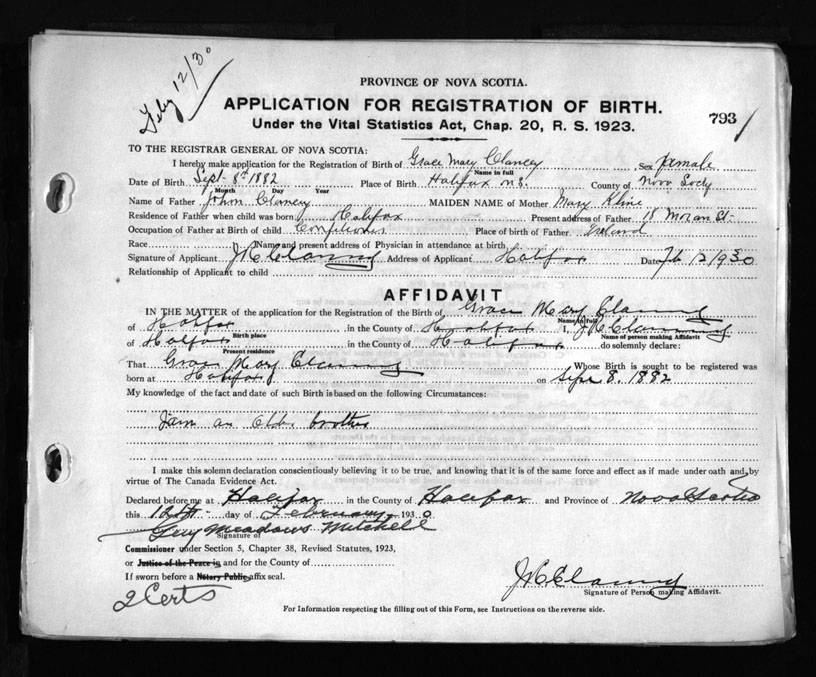 Feby 12/30
PROVINCE OF NOVA SCOTIA.
APPLICATION FOR REGISTRATION OF BIRTH.
Under the Vital Statistics Act, Chap. 20, R. S. 1923.
793
TO THE REGISTRAR GENERAL OF NOVA SCOTIA:
I hereby make application for the Registration of Birth of Grace Mary Clancey Sex female
Name in full
Date of Birth Sept 8th 1882 Place of Birth Halifax N.S. County of Nova Scotia
Month Day Year
Name of Father John Clancey MAIDEN NAME of Mother Mary Kline
Residence of Father when child was born Halifax Present address of Father 18 Moran St.
Occupation of Father at Birth of child Place of birth of Father Ireland
Race Name and present address of Physician in attendance at birth
Signature of Applicant J C Clancey Address of Applicant Halifax Date Feb 12 1930
Relationship of Applicant to child
AFFIDAVIT
IN THE MATTER of the application for the Registration of the Birth of Grace Mary Clancey
Name in full
of Halifax in the County of Halifax I, J C Clancey
Birth place Name of person making Affidavit
of Halifax in the County of Halifax do solemnly declare:
Present residence
That Grace Mary Clancey Whose Birth is sought to be registered was
born at Halifax on Sept 8. 1882
My knowledge of the fact and date of such Birth is based on the following Circumstances:
I am an older brother
I make this solemn declaration conscientiously believing it to be true, and knowing that it is of the same force and effect as if made under oath and by
virtue of The Canada Evidence Act.
Declared before me at Halifax in the County of Halifax and Province of Nova Scotia
this 12th day of February 1930
Guy Meadows Mitchell
Signature of
Commissioner under Section 5, Chapter 38, Revised Statutes, 1923,
or Justice of the Peace in and for the County of
If sworn before a Notary Public affix seal.
J C Clancey
Signature of Person making Affidavit.
2 Certs
For Information respecting the filling out of this Form, see Instructions on the reverse side.